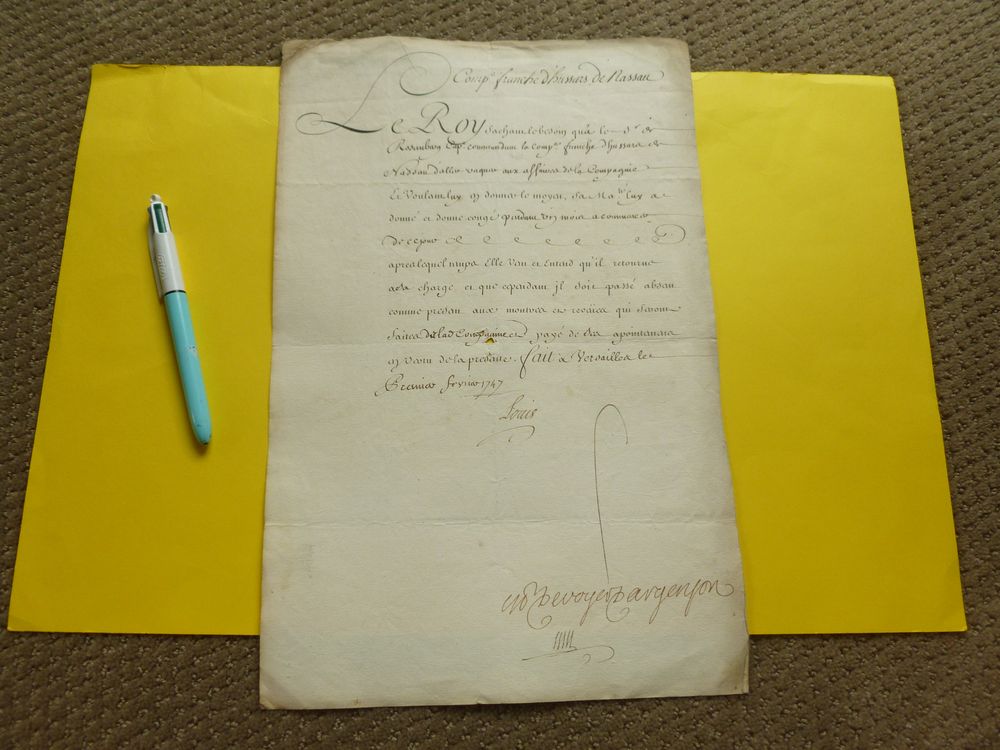 Comp.e franche d'hussars de Nassau
Le Roy sachant le besoin qu'a le S.r de
Rosemberg Cap.e commandant la comp.e franche d'hussars de
Nassau d'aller vaquer aux affaires de la Compagnie
Et Voulant luy en donner le moyen, sa Ma.té luy a
donné et donne congé pendant mois a commencer
de ce jour
apres lequel temps Elle Veut et Entend qu'il retourne
a sa charge et que cependant jl soit passé absent
comme present aux montres et revües qui seront
faites de lad. Compagnie et payé de ses apointemens
en vertu de la presente. fait a Versailles le
Premier fevrier 1747
Louis
De voyer D'argenson